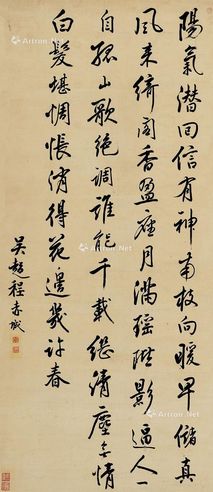 陽氣潛回信有神南枝向暖早儲真
風来綺閣香盈座月滿瑶階影逼人一
自孤山歌絕調誰能千載繼清塵多情
白髮堪惆悵消得花邊幾許春
吳趨程赤城
Artron.Net